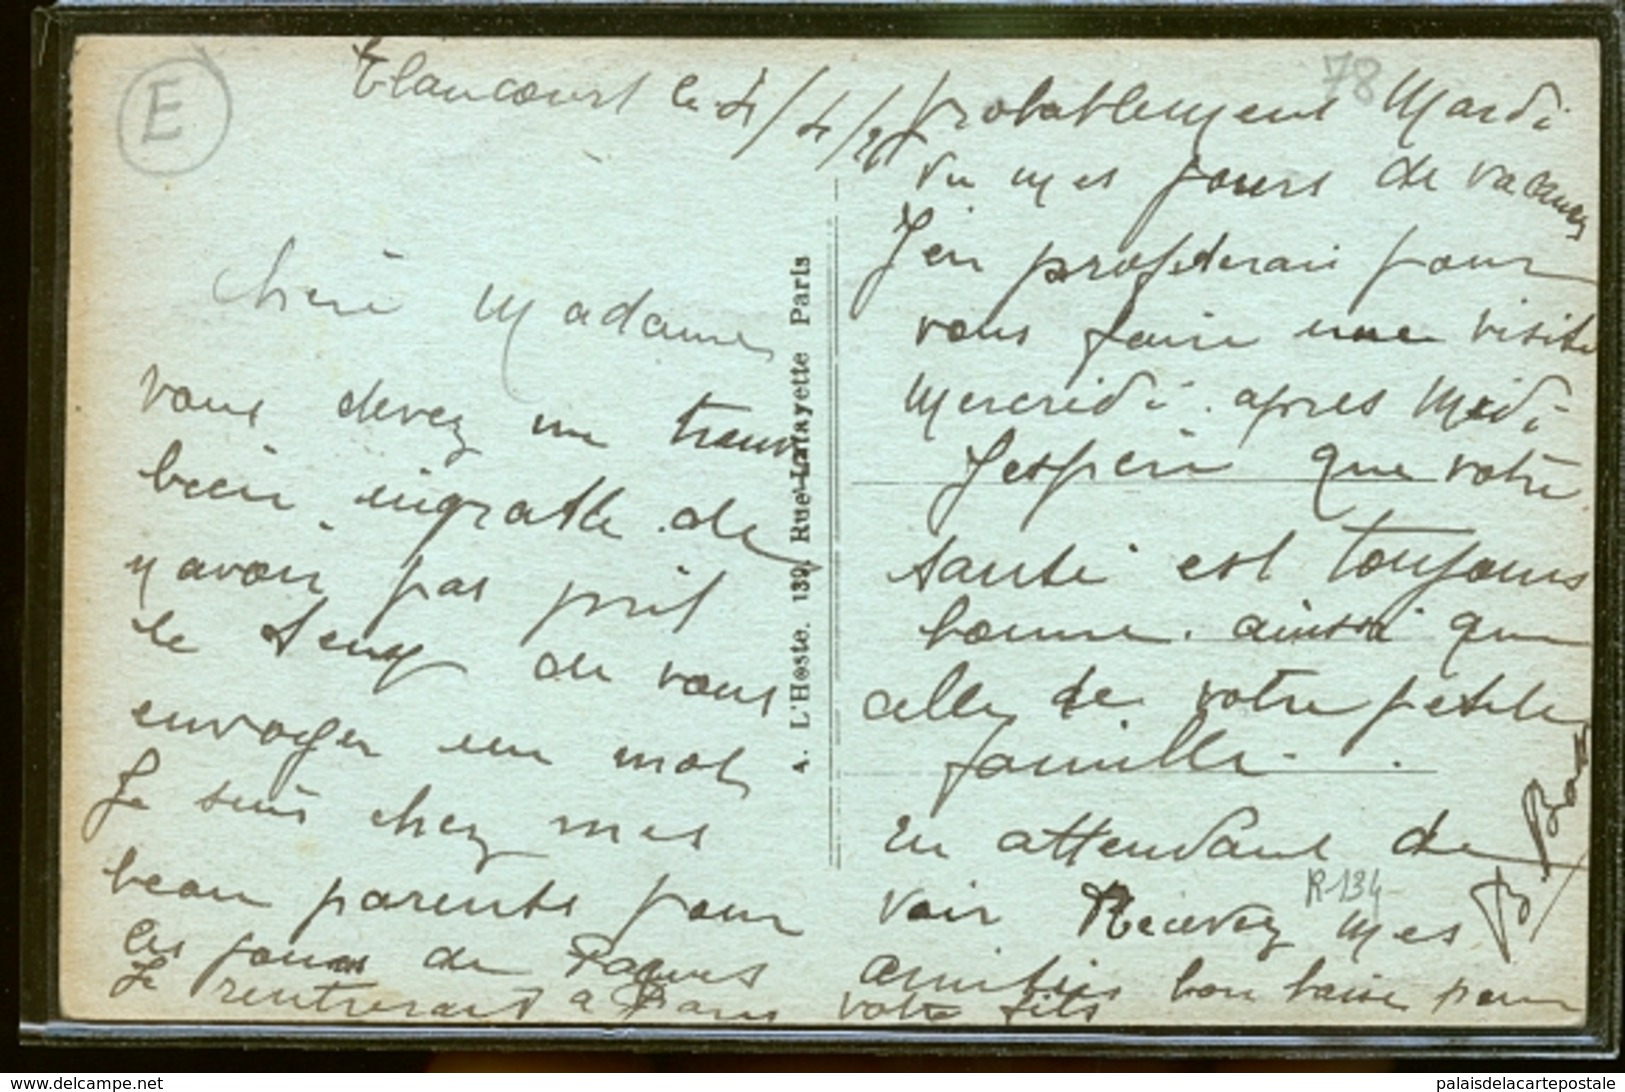 E
Elancourt le 4/4/26
Chère Madame
vous devez me trouver
bien ingratte de
n'avoir pas prit
le temp de vous
envoyer un mot
Je suis chez mes
beau parents pour
les jours de Paques
Je rentrerais a Paris
A. L'Hoste. 139, Rue Lafayette Paris
78
probablement Mardi
vu mes jours de vacances
J'en profiterais pour
vous faire une visite
Mercredi apres Midi
J'espère que votre
santé est toujours
bonne ainsi que
celle de votre petite
famille.
En attendant de
voir Recevez mes
amitiés bon baise pour
votre fils
R-134
delcampe.net
palaisdelacartepostale